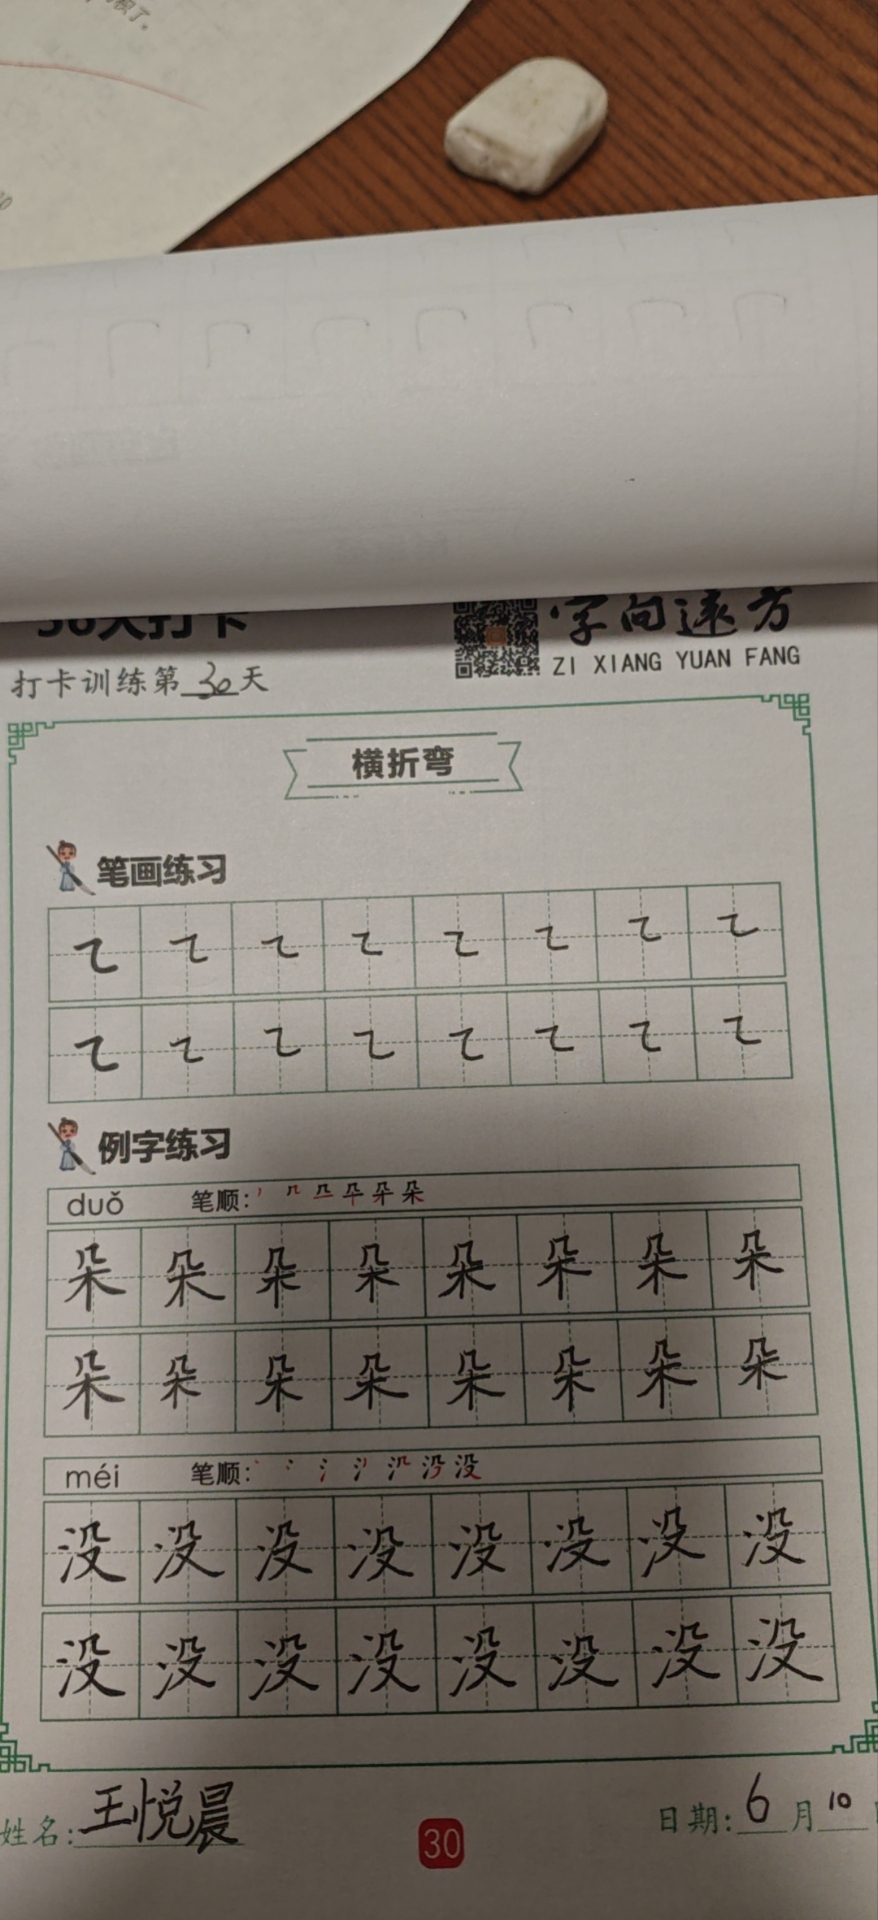 30天打卡
字向远方
ZI XIANG YUAN FANG
打卡训练第30天
横折弯
笔画练习
例字练习
duǒ 笔顺:
朵朵朵朵朵朵朵朵
朵朵朵朵朵朵朵朵
méi 笔顺:
没没没没没没没没
没没没没没没没没
姓名:王悦晨
30
日期:6月10